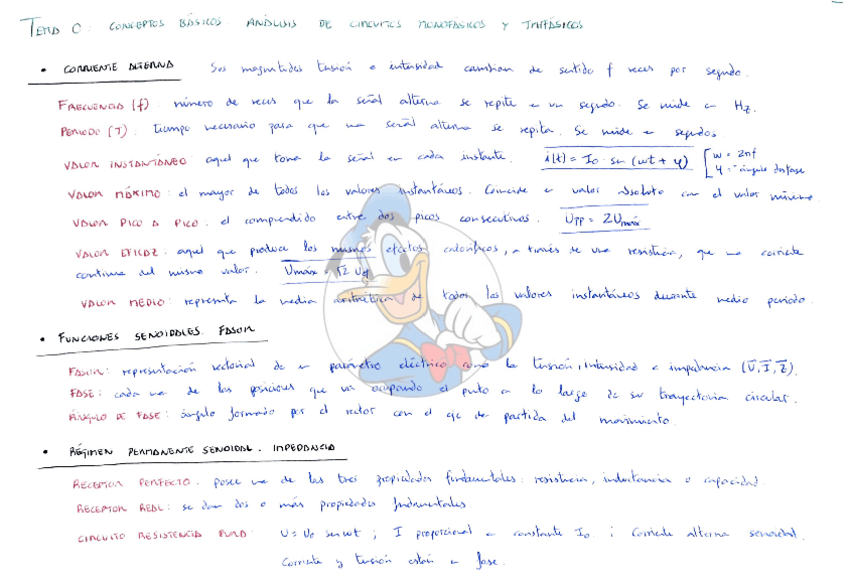 TEMA 0: CONCEPTOS BÁSICOS. ANÁLISIS DE CIRCUITOS MONOFÁSICOS Y TRIFÁSICOS
• CORRIENTE ALTERNA Sus magnitudes tensión o intensidad cambian de sentido f veces por segundo.
FRECUENCIA (f): número de veces que la señal alterna se repite en un segundo. Se mide en Hz.
PERIODO (T): tiempo necesario para que una señal alterna se repita. Se mide en segundos
VALOR INSTANTÁNEO: aquel que toma la señal en cada instante. i(t) = I₀ · sen (wt + φ) [ w = 2πf
φ = ángulo desfase
VALOR MÁXIMO: el mayor de todos los valores instantáneos. Coincide en valor absoluto con el valor mínimo.
VALOR PICO A PICO: el comprendido entre dos picos consecutivos. Upp = 2Umáx
VALOR EFICAZ: aquel que produce los mismos efectos caloríficos, a través de una resistencia, que una corriente
continua del mismo valor. Umáx = √2 Uef
VALOR MEDIO: representa la media aritmética de todos los valores instantáneos durante medio periodo.
• FUNCIONES SENOIDALES. FASOR
FASOR: representación vectorial de un parámetro eléctrico como la tensión, intensidad e impedancia (U̅, I̅, Z̅).
FASE: cada una de las posiciones que va ocupando el punto a lo largo de su trayectoria circular.
ÁNGULO DE FASE: ángulo formado por el vector con el eje de partida del movimiento.
• RÉGIMEN PERMANENTE SENOIDAL. IMPEDANCIA
RECEPTOR PERFECTO: posee una de las tres propiedades fundamentales: resistencia, inductancia o capacidad.
RECEPTOR REAL: se dan dos o más propiedades fundamentales.
CIRCUITO RESISTENCIA PURA: U = U₀ sen wt ; I proporcional a constante I₀ ; Corriente alterna senoidal.
Corriente y tensión están en fase.